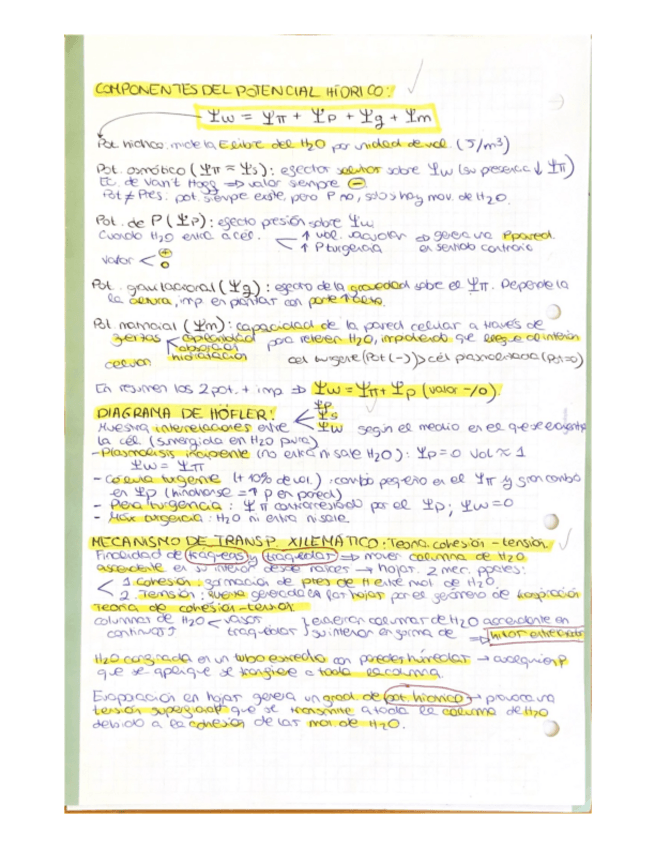 COMPONENTES DEL POTENCIAL HÍDRICO:
Ψw = Ψπ + Ψp + Ψg + Ψm
Pot. hídrico: mide la E libre del H2O por unidad de vol. (J/m³)
Pot. osmótico (Ψπ = Ψs): efecto solutos sobre Ψw (su presencia ↓ Ψπ)
Ec. de Van't Hoff ⇒ valor siempre ⊖
Pot ≠ Pres. pot. siempre existe, pero P no, solo si hay mov. de H2O.
Pot. de P (Ψp): efecto presión sobre Ψw
Cuando H2O entra a cél. < ↑ vol. vacuolar ⇒ genera una Ppared
↑ P turgencia en sentido contrario
valor < + 0
Pot. gravitacional (Ψg): efecto de la gravedad sobre el Ψπ. Depende
la altura, imp en plantas con porte ↑ alto.
Pot. matricial (Ψm): capacidad de la pared celular a través de
fuerzas < capilaridad para retener H2O, impidiendo que llegue al interior
adsorción
celular hidratación cél turgente (Pot (-)) > cél plasmolizada (Pot=0)
En resumen los 2 pot. + imp ⇒ Ψw = Ψπ + Ψp (valor -/0).
DIAGRAMA DE HÖFLER: Ψp
Muestra interrelaciones entre < Ψs
Ψw según el medio en el que se encuentre
la cél (sumergida en H2O pura)
- Plasmólisis incipiente (no entra ni sale H2O): Ψp=0 Vol ≈ 1
Ψw = Ψπ
- Célula turgente (+10% de vol.): cambio pequeño en el Ψπ y gran cambio
en Ψp
- Plena turgencia: Ψπ contrarrestado por el Ψp; Ψw=0
- Máx turgencia: H2O ni entra ni sale.
MECANISMO DE TRANSP. XILEMÁTICO: Teoría cohesión-tensión.
Finalidad de tráqueas y traqueidas ⇒ mover columna de H2O
ascendente en su interior desde raíces → hojas. 2 mec. ppales:
< 1. Cohesión: formación de ptes de H entre mol. de H2O.
2. Tensión: fuerza generada en las hojas por el fenómeno de transpiración
Teoría de cohesión-tensión:
columnas de H2O < vasos } existen columnas de H2O ascendente en
continuas ↑ traqueidas su interior en forma de ⇒ hilos estrechos
H2O confinada en un tubo estrecho con paredes húmedas → cualquier P
que se aplique se transfiere a toda la columna.
Evaporación en hojas genera un grad. de pot. hídrico → provoca una
tensión superficial que se transmite a toda la columna de H2O
debido a la cohesión de las mol. de H2O.